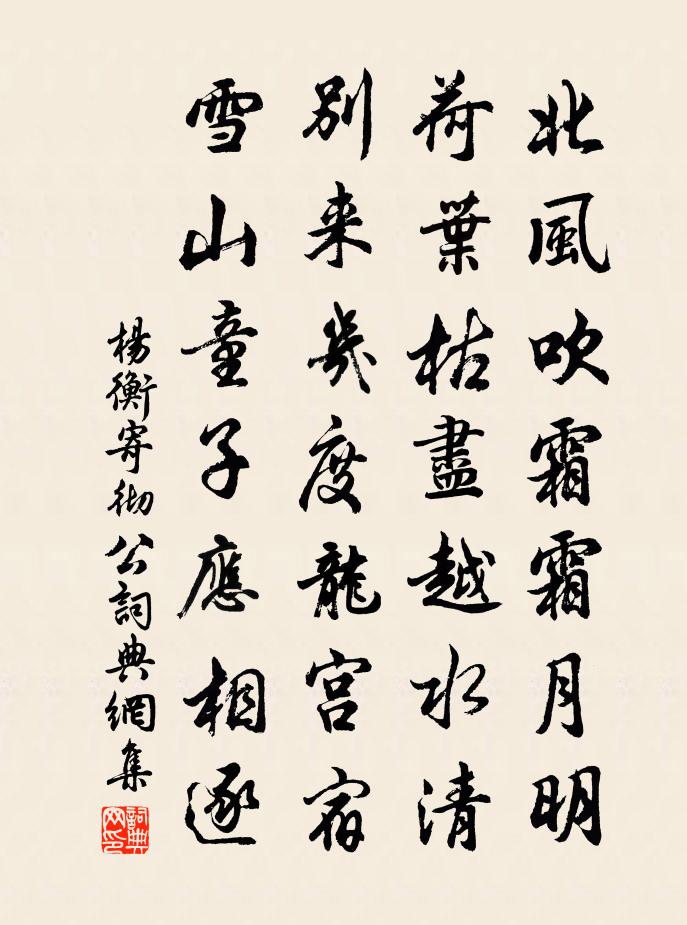 北風吹霜霜月明
荷葉枯盡越水清
別来幾度龍宮宿
雪山童子應相逐
楊衡寄彻公詞典網集
詞典网印